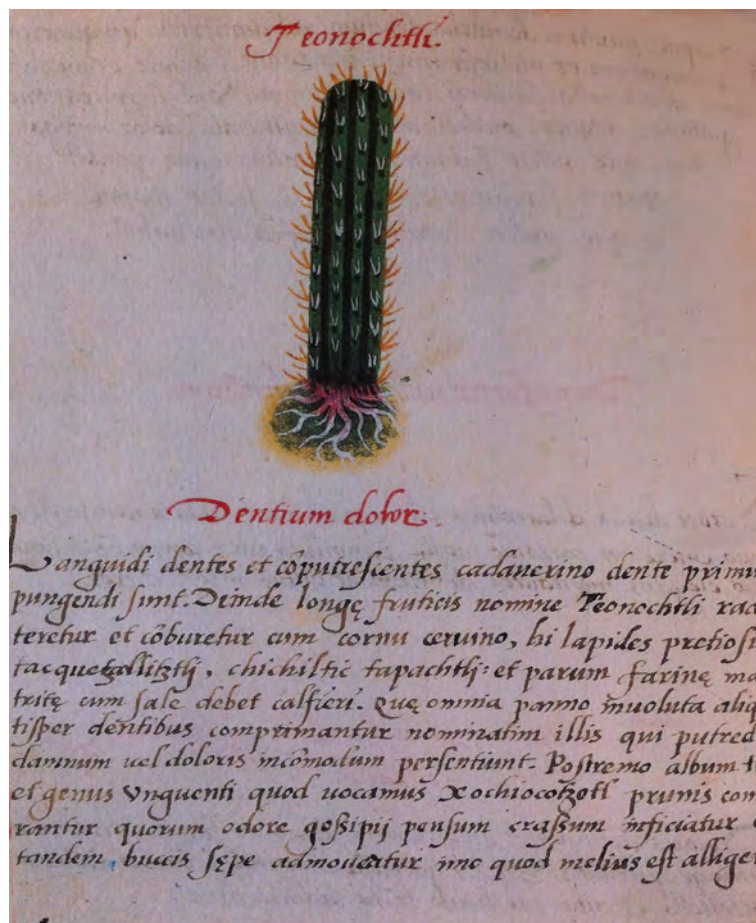 Teonochtli.
Dentium dolor.
Languidi dentes et cõputrescentes cadauerino dente primu
pungendi sunt. Deinde longę fruticis nomine Teonochtli rad
teretur et cõburetur cum cornu ceruino, hi lapides pretiosi
tacquetzallitztli, chichiltic tapachtli: et parum farinę ma
tritę cum sale debet calfieri. Quę omnia panno inuoluta aliq
tisper dentibus comprimantur nominatim illis qui putred
damnum uel doloris incõmodum persentiunt. Postremo album
et genus Vnguenti quod uocamus Xochiocotzotl prunis com
rantur quorum odore gossipij pensum crassum inficiatur
tandem, buccis sępe admoueatur imo quod melius est allige